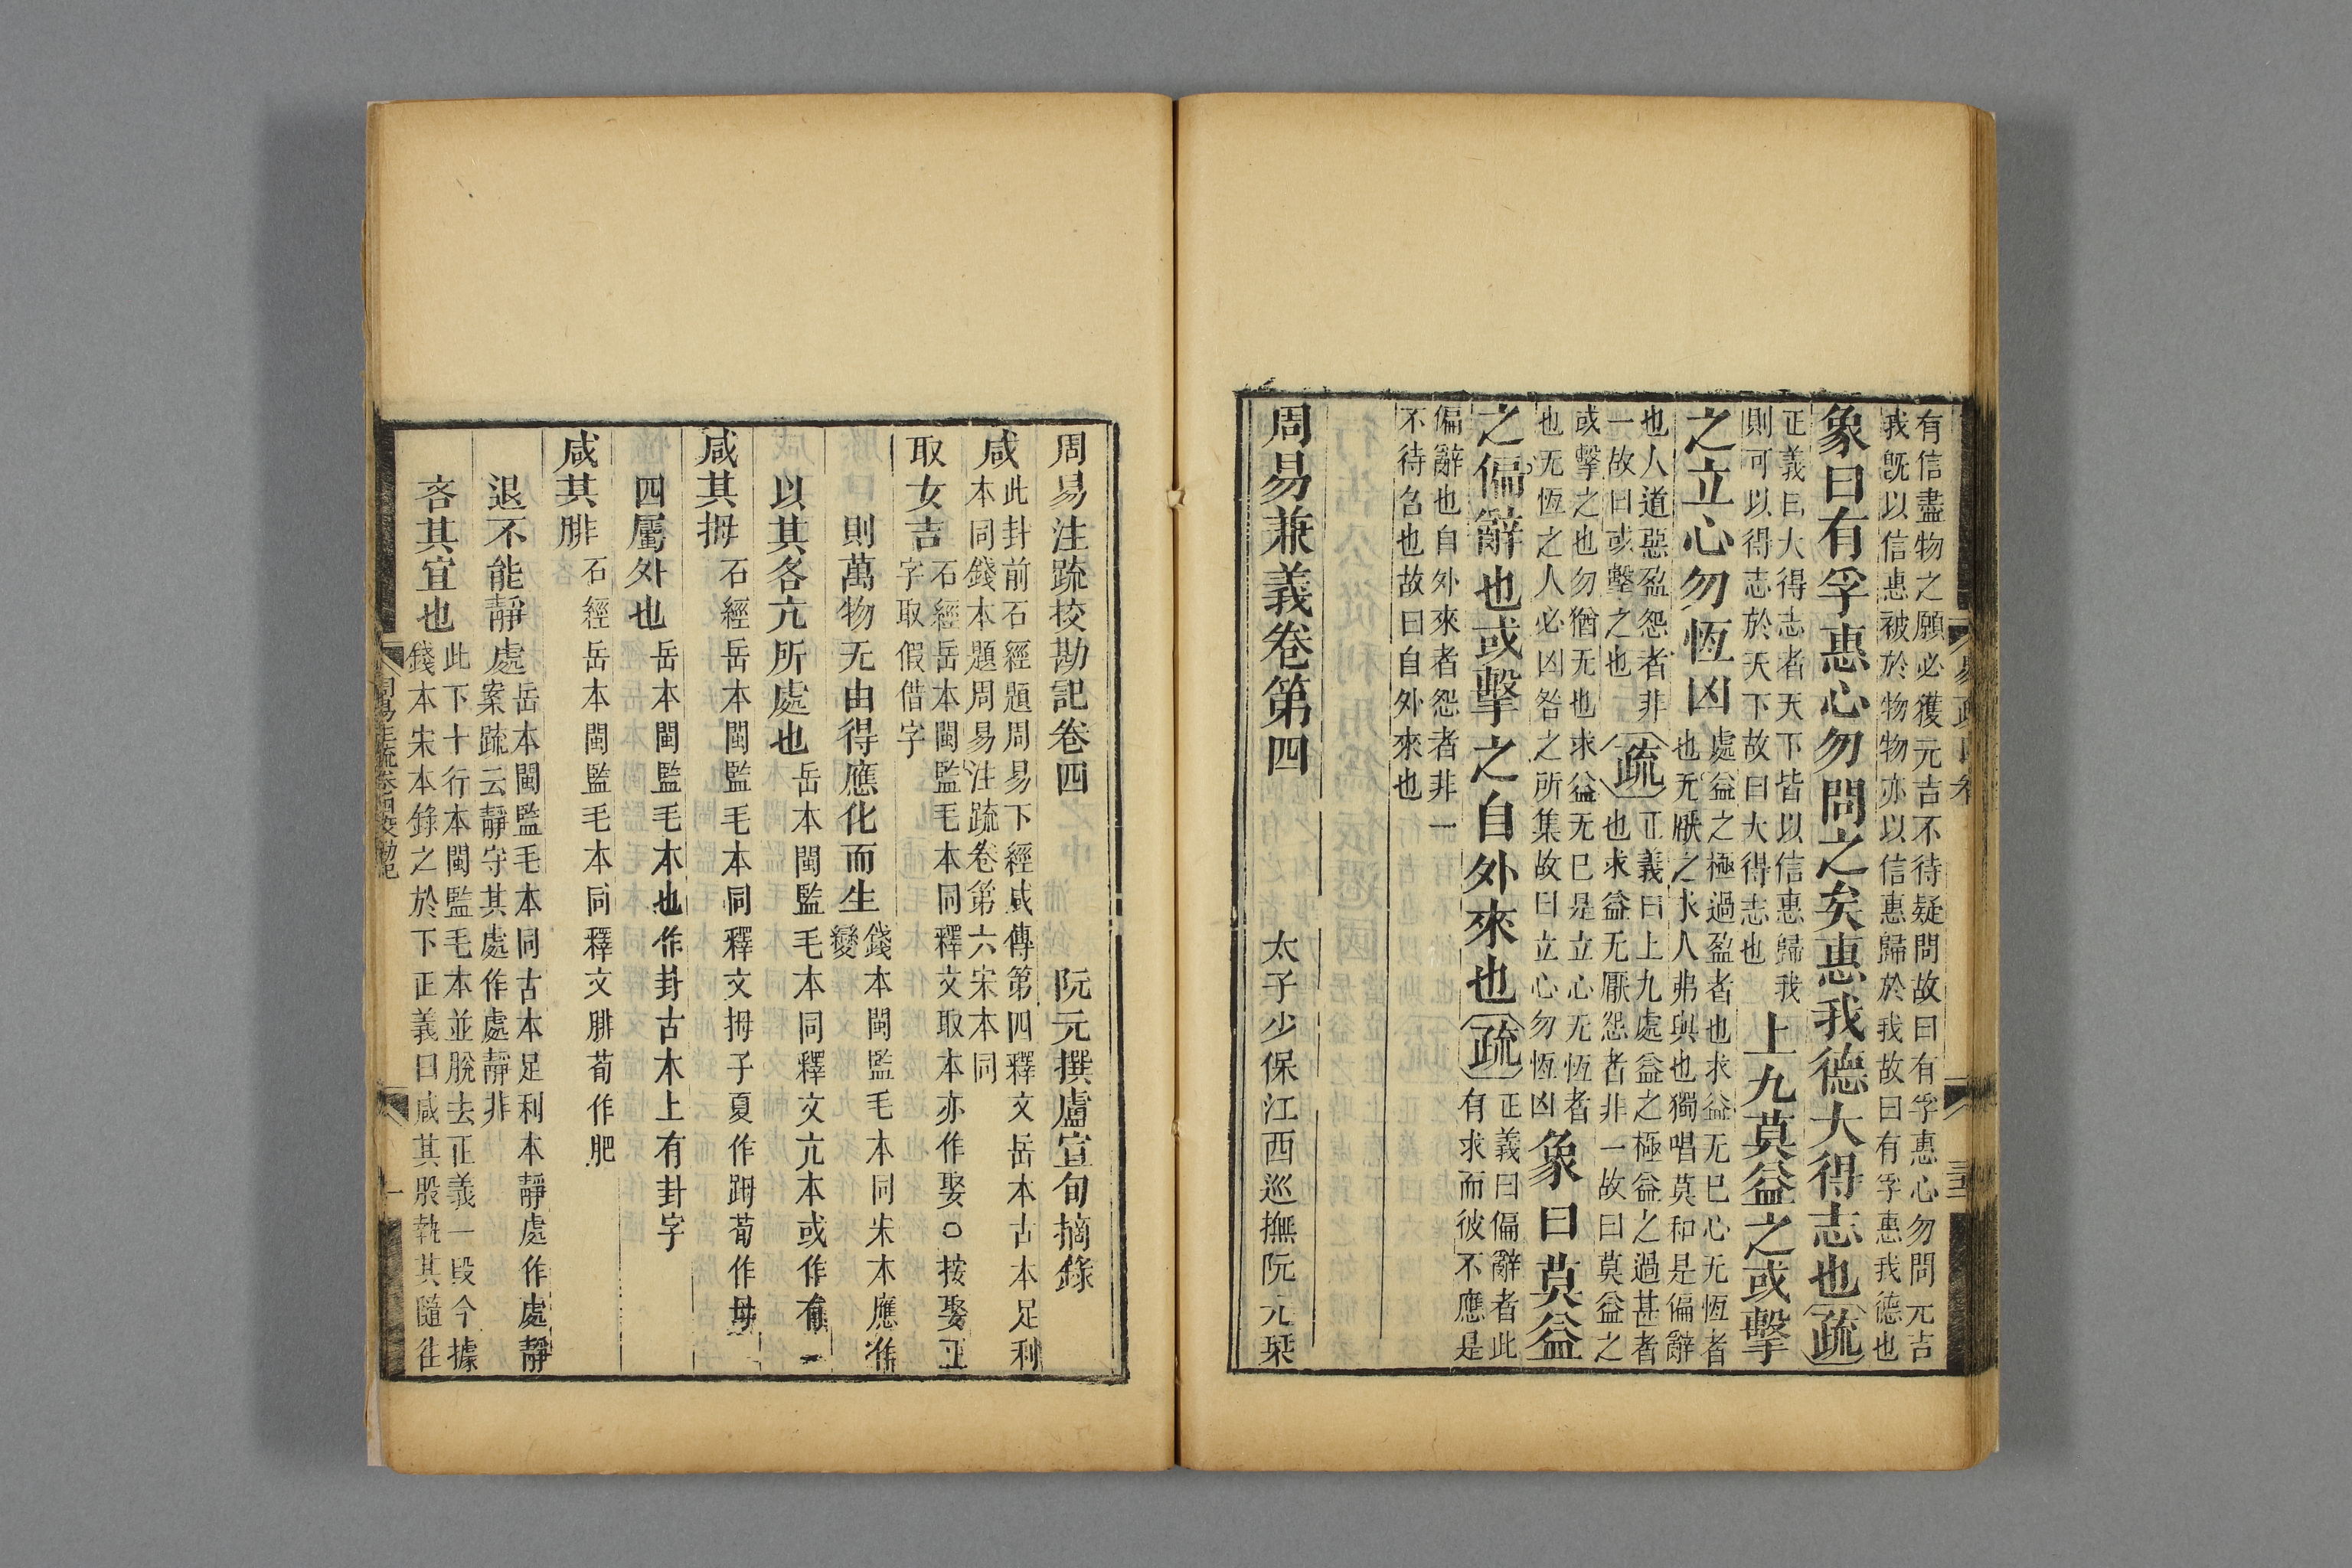 有信盡物之願必獲元吉不待疑問故曰有孚惠心勿問元吉
我旣以信惠被於物物亦以信惠歸於我故曰有孚惠我德也
象曰有孚惠心勿問之矣惠我德大得志也疏
正義曰大得志者天下皆以信惠歸我
則可以得志於天下故曰大得志也
上九莫益之或擊
之立心勿恆凶
處益之極過盈者也求益无已心无恆者
也无厭之求人弗與也獨唱莫和是偏辭
也人道惡盈怨者非
一故曰或擊之也
疏
正義曰上九處益之極益之過甚者
也求益无厭怨者非一故曰莫益之
或擊之也勿猶无也求益无已是立心无恆者
也无恆之人必凶咎之所集故曰立心勿恆凶
象曰莫益
之偏辭也或擊之自外來也疏
正義曰偏辭者此
有求而彼不應是
偏辭也自外來者怨者非一
不待召也故曰自外來也
周易兼義卷第四
太子少保江西巡撫阮元栞
周易注疏校勘記卷四
阮元撰盧宣旬摘錄
咸
此卦前石經題周易下經咸傳第四釋文岳本古本足利
本同錢本題周易注疏卷第六宋本同
取女吉
石經岳本閩監毛本同釋文取本亦作娶○按娶正
字取假借字
則萬物无由得應化而生
錢本閩監毛本同宋本應作
變
以其各亢所處也
岳本閩監毛本同釋文亢本或作有
咸其拇
石經岳本閩監毛本同釋文拇子夏作䟞荀作母
四屬外也
岳本閩監毛本也作卦古本上有卦字
咸其腓
石經岳本閩監毛本同釋文腓荀作肥
退不能靜處
岳本閩監毛本同古本足利本靜處作處靜
案疏云靜守其處作處靜非
吝其宜也
此下十行本閩監毛本並脫去正義一段今據
錢本宋本錄之於下正義曰咸其股執其隨往
周易注疏卷四校勘記
一